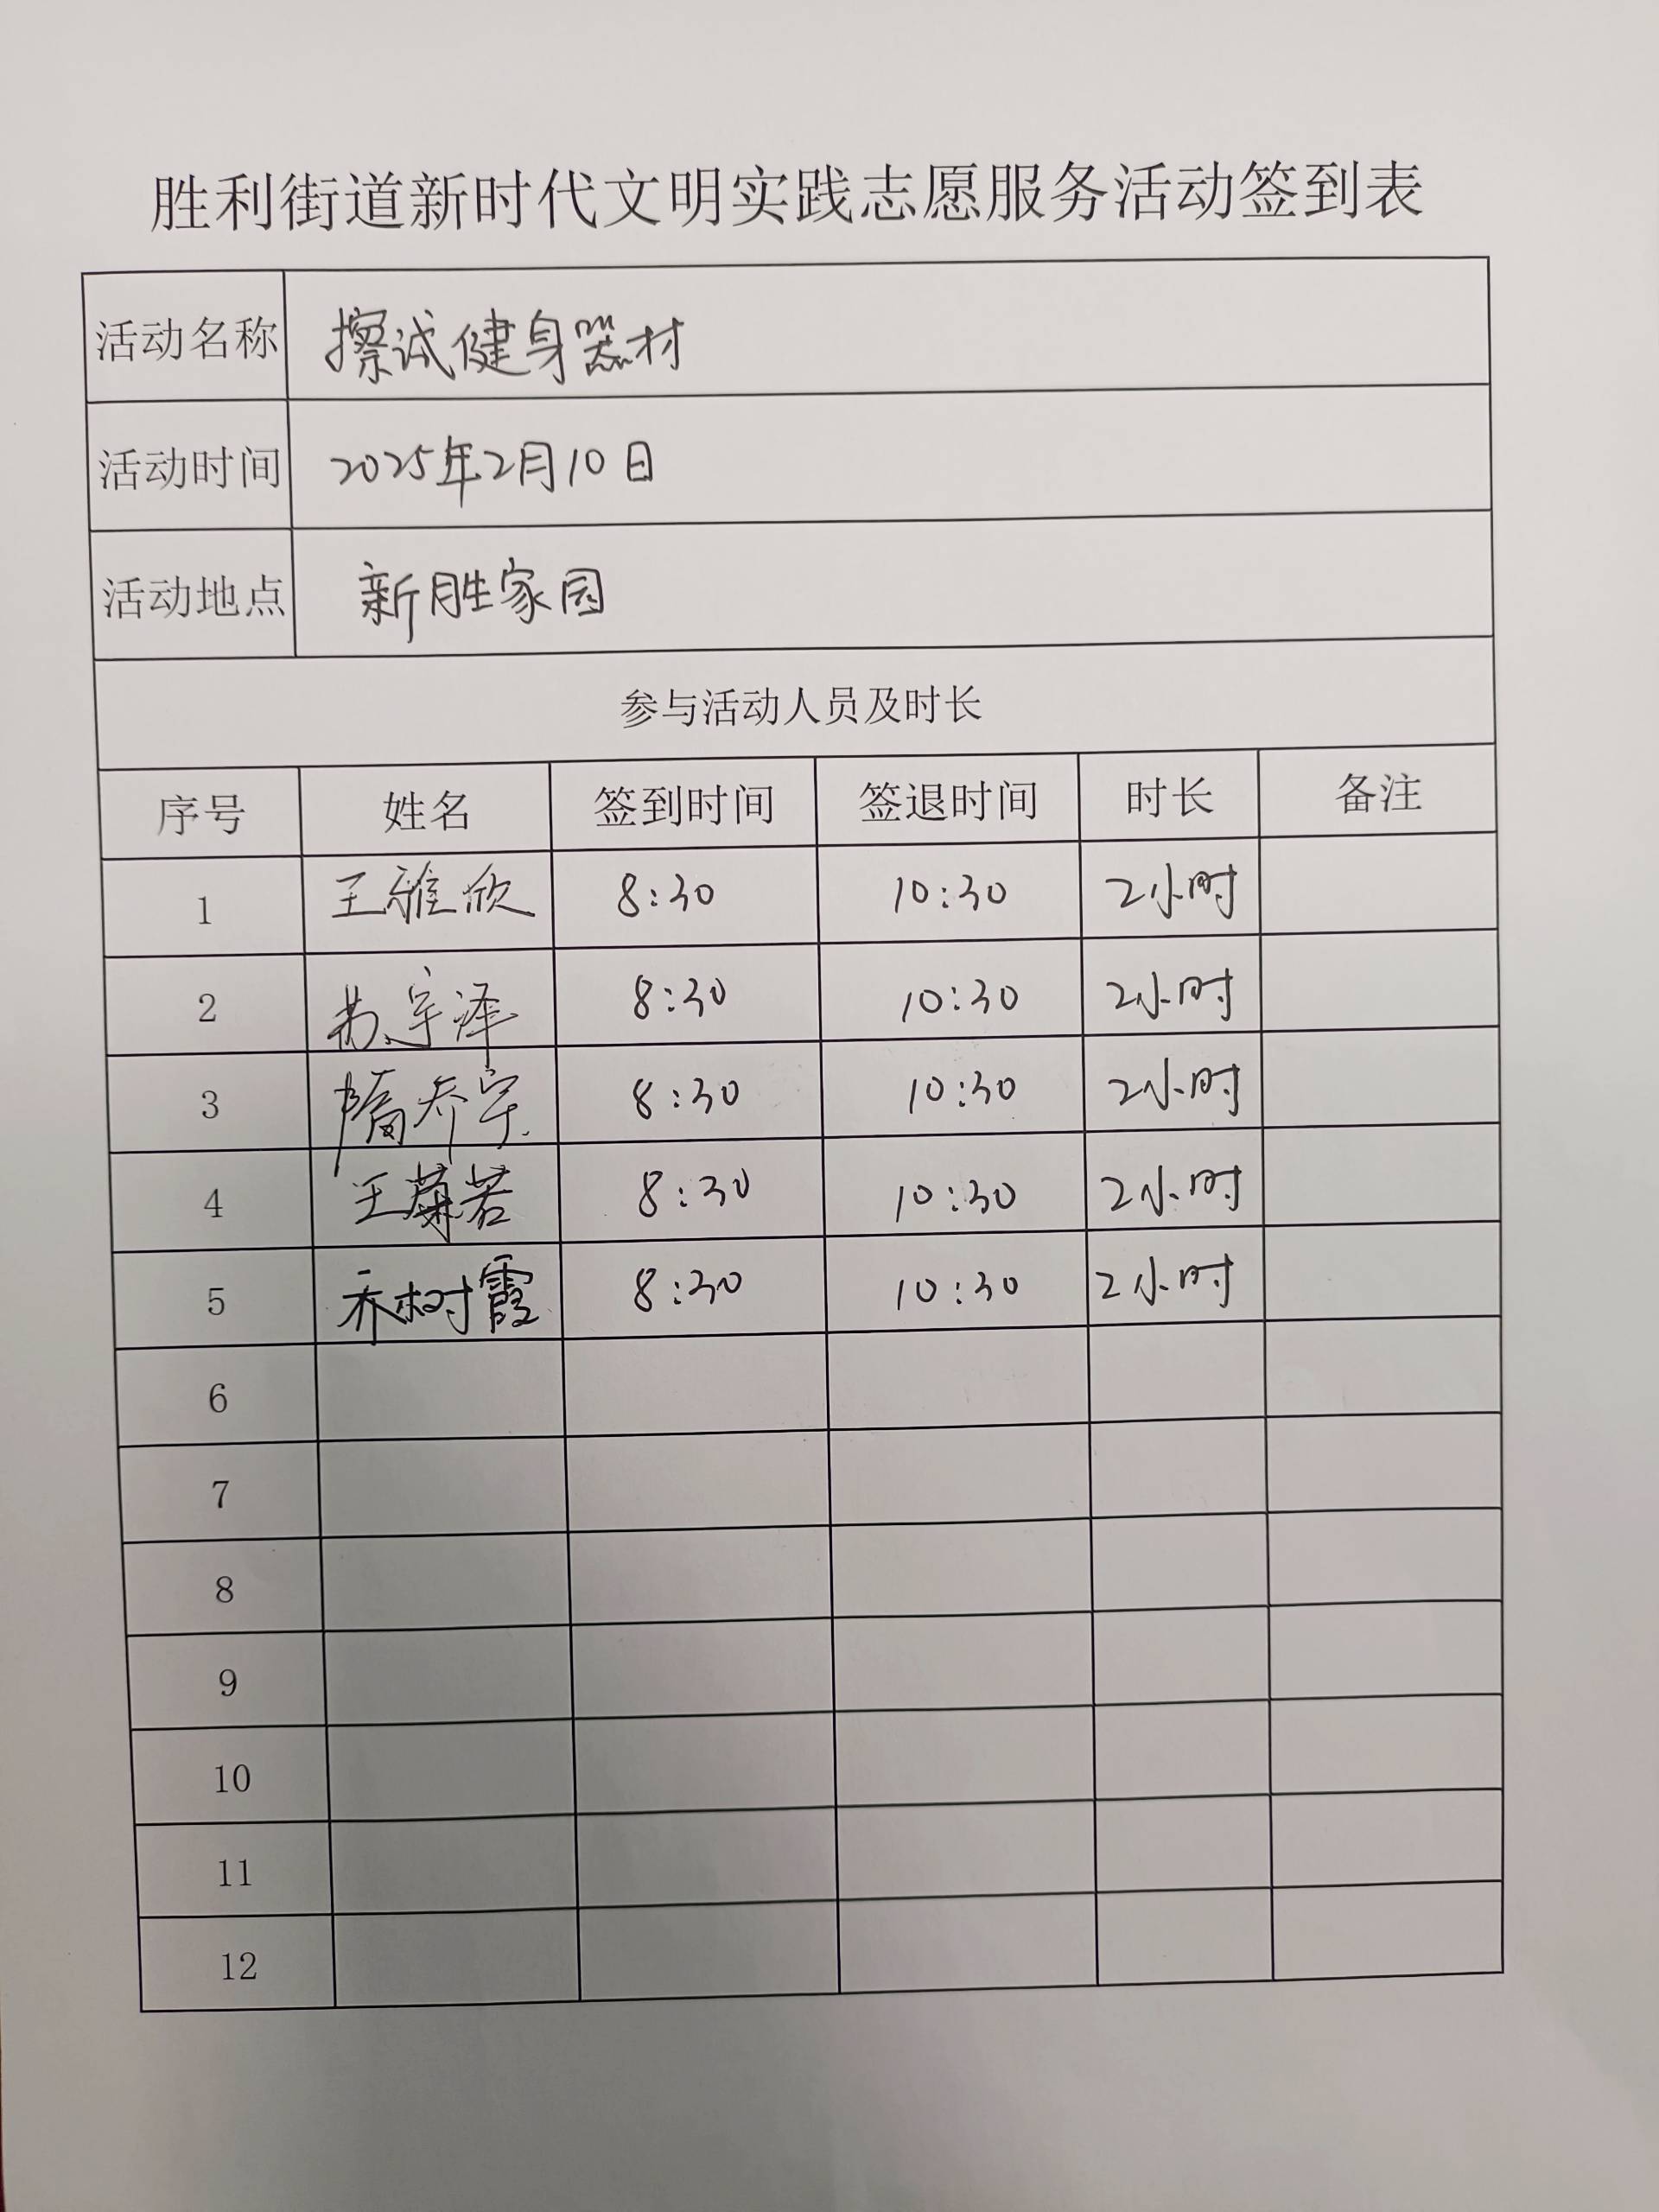 胜利街道新时代文明实践志愿服务活动签到表
活动名称 擦试健身器材
活动时间 2025年2月10日
活动地点 新胜家园
参与活动人员及时长
序号 姓名 签到时间 签退时间 时长 备注
1 王雅欣 8:30 10:30 2小时
2 苏宇泽 8:30 10:30 2小时
3 隋乔宇 8:30 10:30 2小时
4 王菊若 8:30 10:30 2小时
5 乔树霞 8:30 10:30 2小时
6
7
8
9
10
11
12